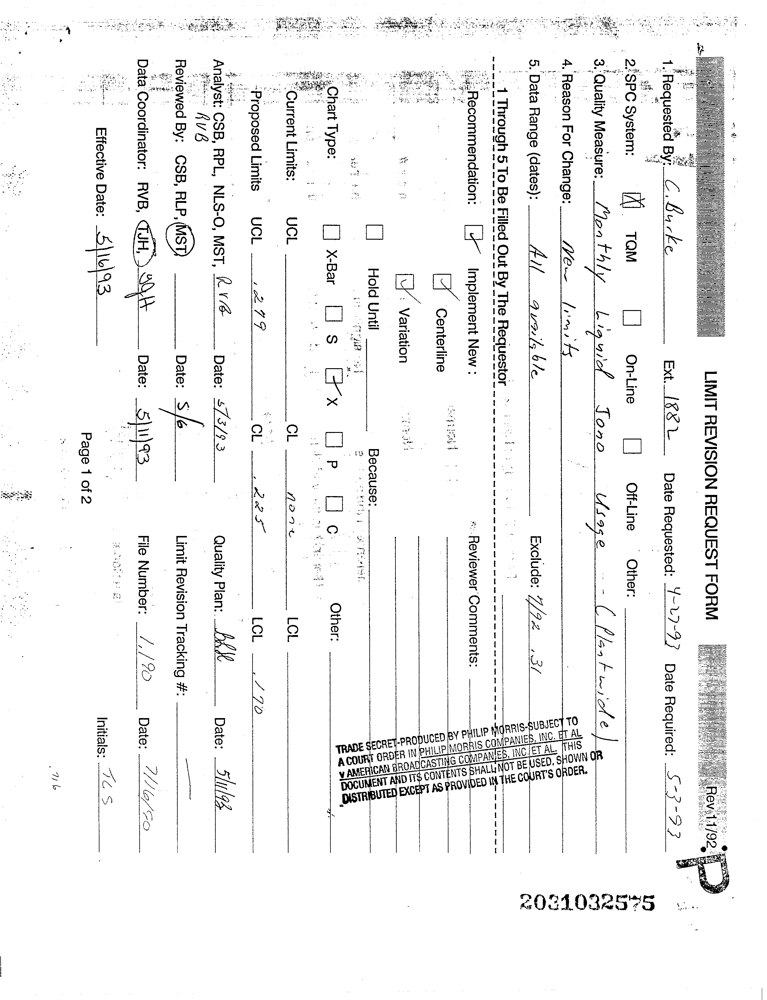 LIMIT REVISION REQUEST FORM Rev 11/92
1. Requested By: C. Burke Ext. 1882 Date Requested: 4-27-93 Date Required: 5-3-93
2. SPC System: TQM On-Line Off-Line Other:
3. Quality Measure: Monthly Liquid Jono Usage - (Plantwide)
4. Reason For Change: New limits
5. Data Range (dates): All available Exclude: 7/92 .31
1 Through 5 To Be Filled Out By The Requestor
Recommendation: Implement New : Reviewer Comments:
Centerline
Variation
Hold Until Because:
Chart Type: X-Bar S X P C Other:
Current Limits: UCL CL none LCL
Proposed Limits UCL .279 CL .225 LCL .170
Analyst: CSB, RPL, NLS-O, MST, RVB Date: 5/3/93 Quality Plan: Date: 5/11/93
RVB
Reviewed By: CSB, RLP, MST, Date: 5/6 Limit Revision Tracking #:
Data Coordinator: RVB, TJH, Date: 5/11/93 File Number: 1,190 Date:
Effective Date: 5/16/93 Initials: TCS
Page 1 of 2
716
TRADE SECRET-PRODUCED BY PHILIP MORRIS-SUBJECT TO
A COURT ORDER IN PHILIP MORRIS COMPANIES, INC. ET AL
v AMERICAN BROADCASTING COMPANIES, INC. ET AL. THIS
DOCUMENT AND ITS CONTENTS SHALL NOT BE USED, SHOWN OR
DISTRIBUTED EXCEPT AS PROVIDED IN THE COURT'S ORDER.
P
2031032575